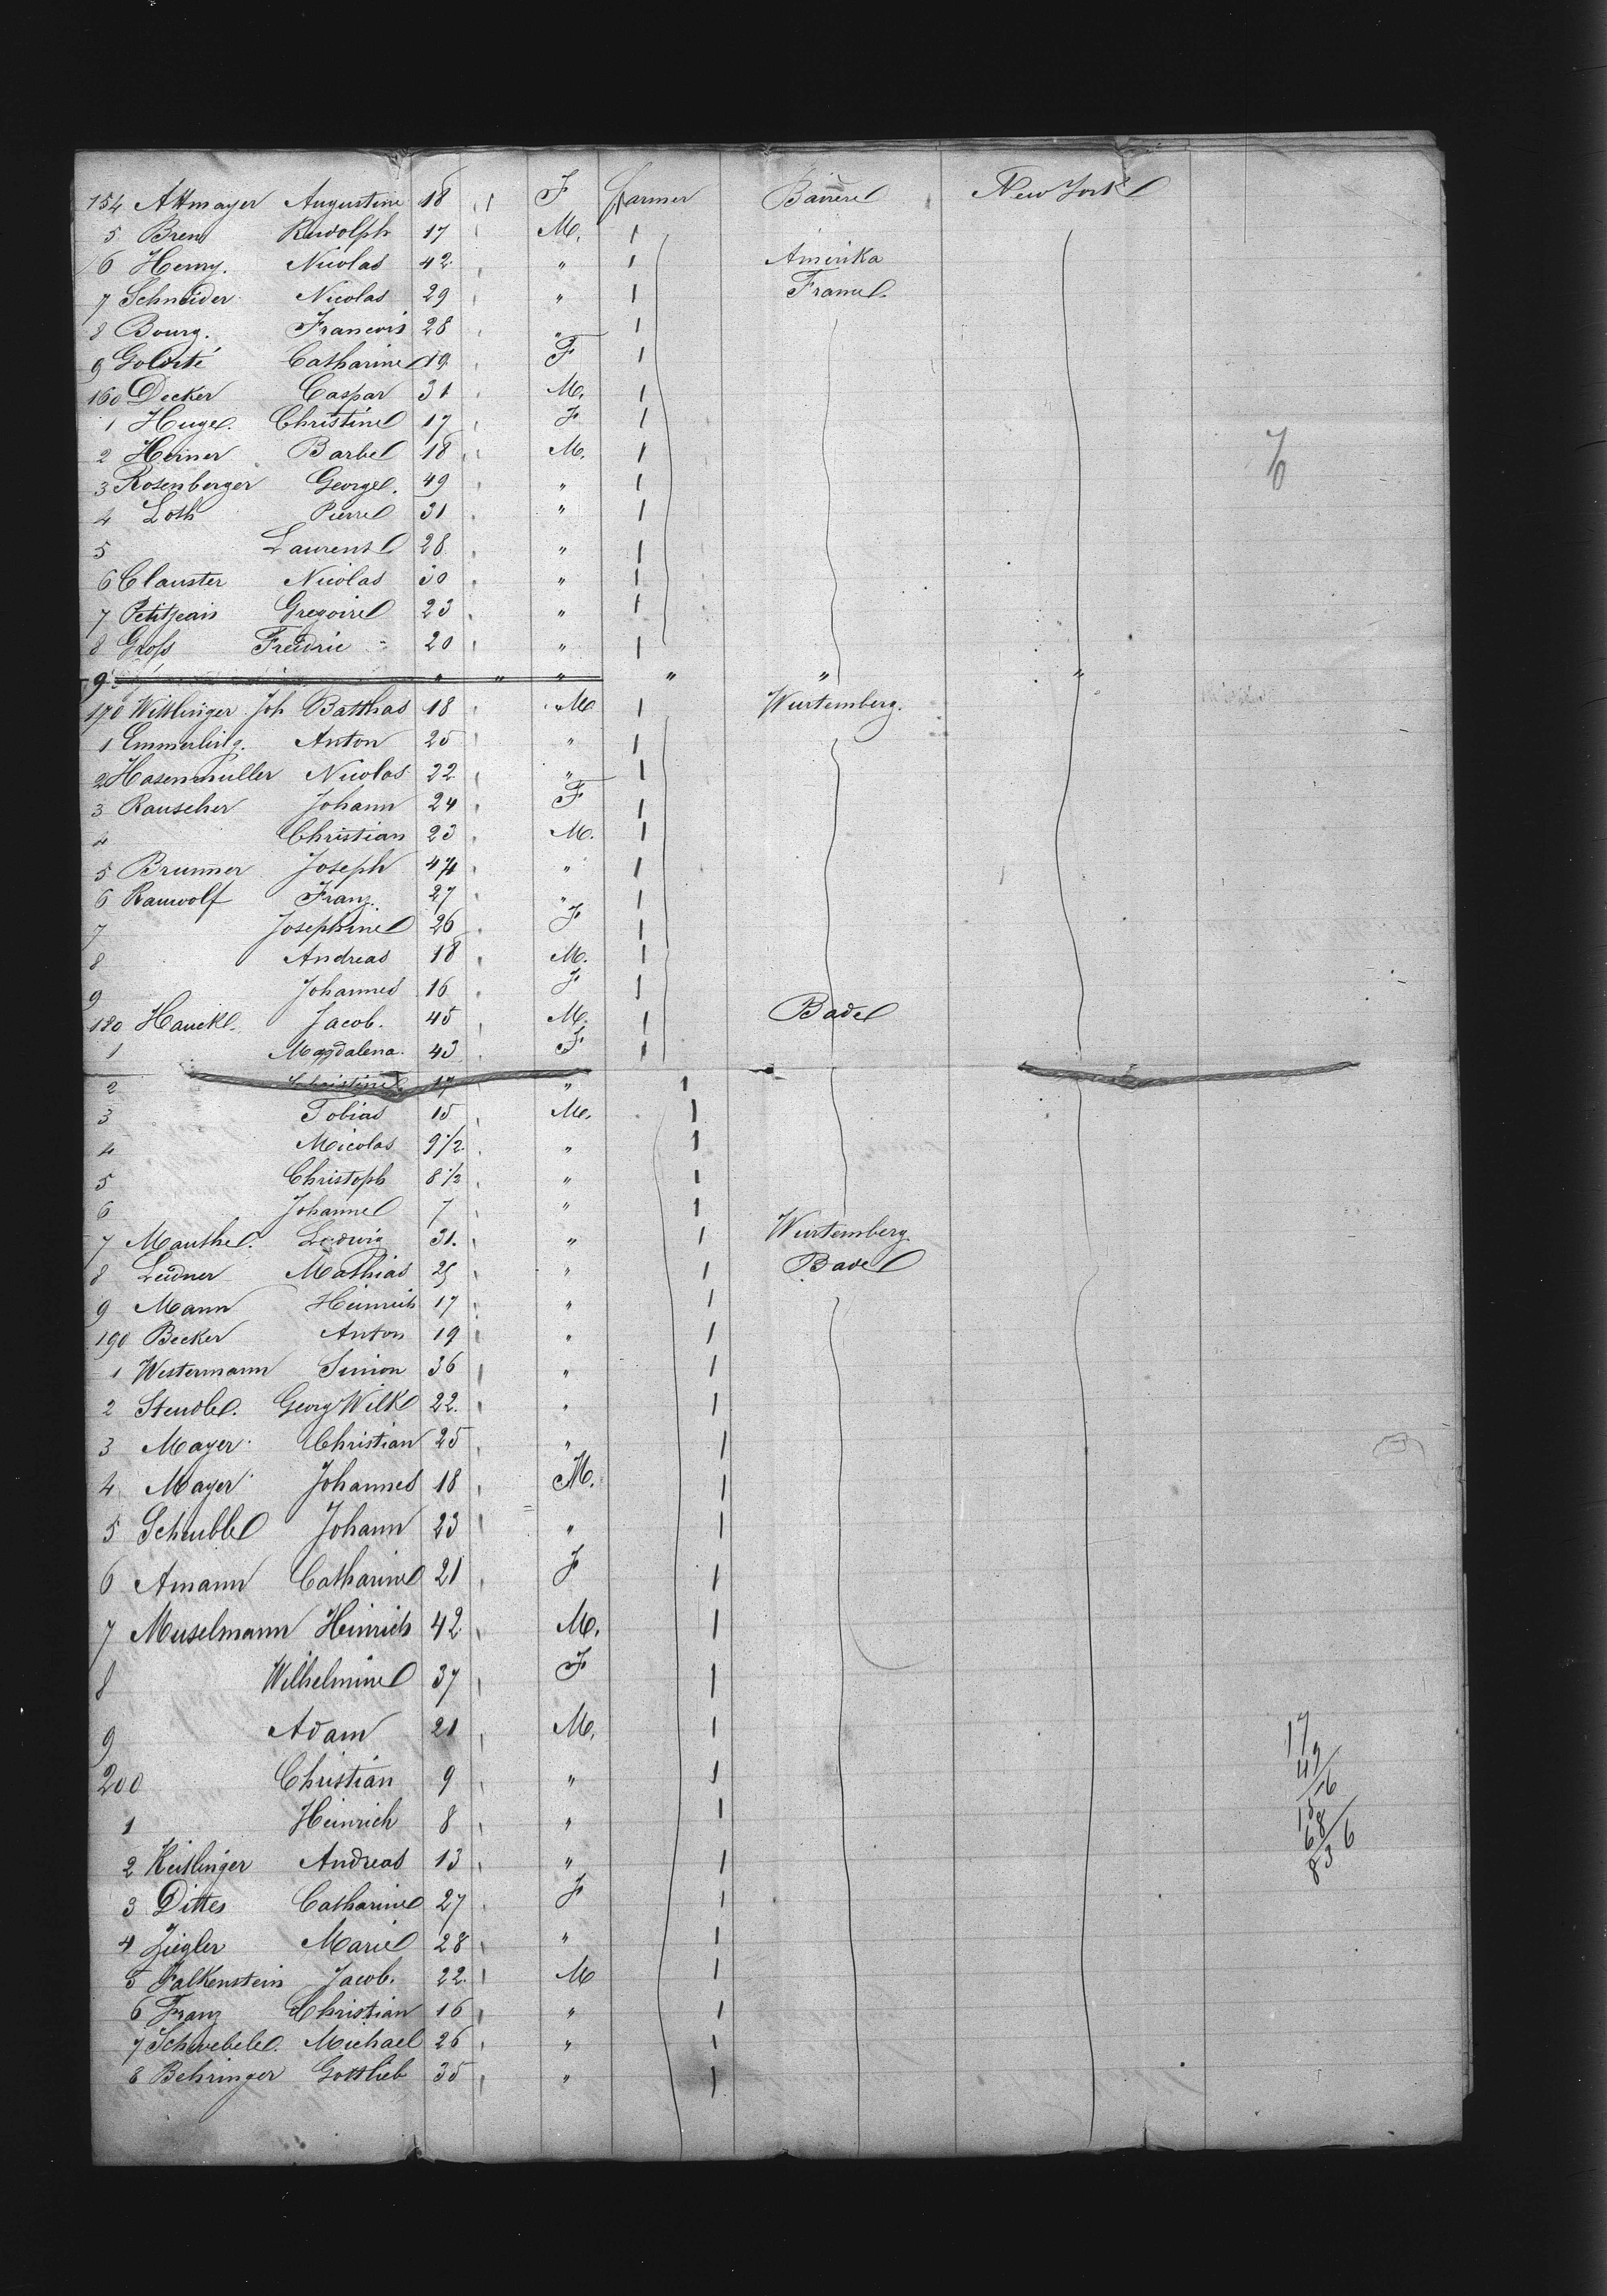 154 Attmayer Augustine 18 F farmer Baiern New York
5 Bren Rudolph 17 M.
6 Henry. Nicolas 42 " Amerika
7 Schneider Nicolas 29 " France
8 Bourg. Francois 28 "
9 Catharine 19 F
160 Decker Caspar 31 M.
1 Huge. Christine 17 F
2 Heiner Barbe 18 M.
3 Rosenberger George. 49 "
4 Loth Pierre 31 "
5 Laurens 28 "
6 Clauster Nicolas 30 "
7 Petitjean Gregoire 23 "
8 Groß Fredric 20 "
9 " " " " " "
170 Wittlinger Joh Balthas 18 M Wurtemberg.
1 Emmerling. Anton 25 "
2 Hasenmuller Nicolas 22 "
3 Rauscher Johann 24 F
4 Christian 23 M.
5 Brunner Joseph 47 "
6 Rauwolf Franz. 27 "
7 Josephine 26 F
8 Andreas 18 M.
9 Johannes 16 F
180 Hauck Jacob. 45 M. Bade
1 Magdalena. 43 F
2 Christine 17 "
3 Tobias 15 M.
4 Nicolas 9 1/2 "
5 Christoph 8 1/2 "
6 Johanne 7 "
7 Mauthe. Ludwig 31. " Wurtemberg
8 Leidner Mathias 25 " Bade
9 Mann Heinrich 17 "
190 Becker Anton 19 "
1 Westermann Simon 36 "
2 Steudle. Georg Wilh 22. "
3 Mayer Christian 25 "
4 Mayer Johannes 18 M.
5 Scheuble Johann 23 "
6 Amann Catharine 21 F
7 Muselmann Heinrich 42 M.
8 Wilhelmine 37 F
9 Adam 21 M.
200 Christian 9 "
1 Heinrich 8 "
2 Keitlinger Andreas 13 "
3 Dittes Catharine 27 F
4 Ziegler Marie 28 "
5 Falkenstein Jacob. 22. M
6 Franz Christian 16 "
7 Schwebele. Michael 26 "
8 Behringer Gottlieb 35 "
17